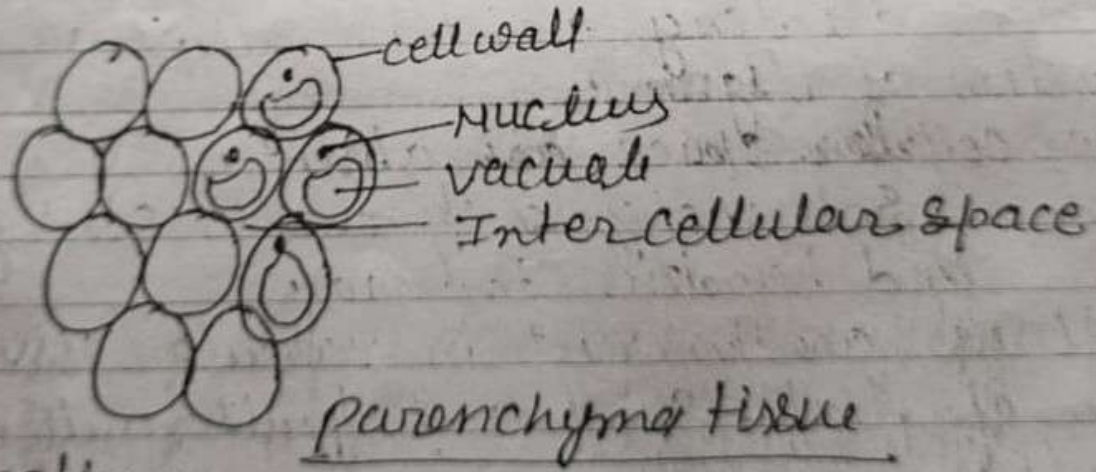 cell wall
Nuclius
vacuale
Inter cellular space
parenchyma tissue